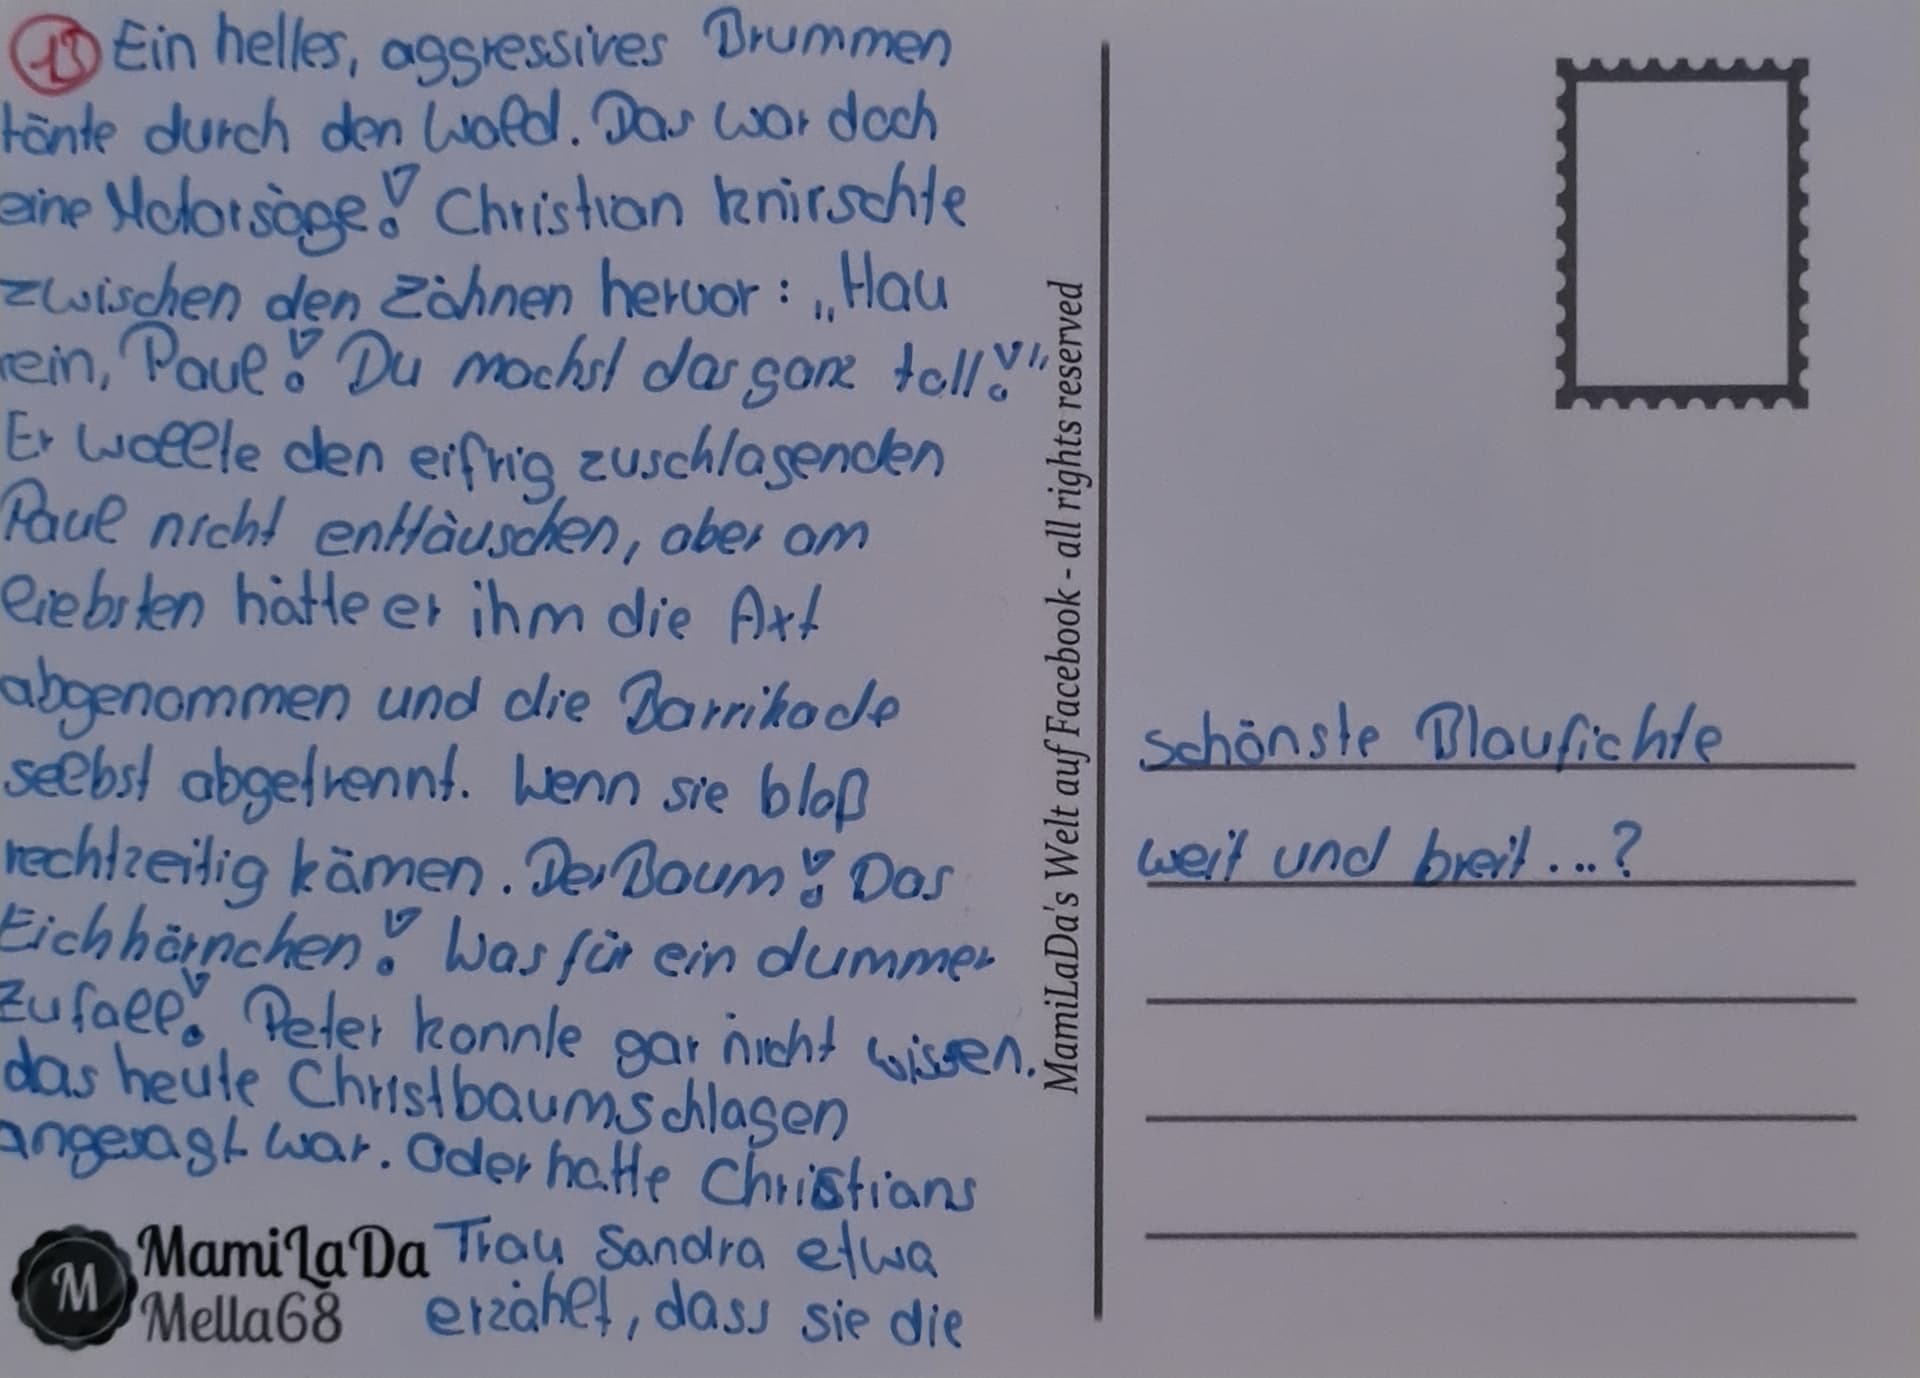 13 Ein helles, aggressives Brummen
tönte durch den Wald. Das war doch
eine Motorsäge! Christian knirschte
zwischen den Zähnen hervor: „Hau
rein, Paul! Du machst das ganz toll!"
Er wollte den eifrig zuschlagenden
Paul nicht enttäuschen, aber am
liebsten hätte er ihm die Axt
abgenommen und die Barrikade
selbst abgetrennt. Wenn sie bloß
rechtzeitig kämen. Der Baum! Das
Eichhörnchen! Was für ein dummer
Zufall! Peter konnte gar nicht wissen.
das heute Christbaumschlagen
angesagt war. Oder hatte Christians
Trau Sandra etwa
erzählt, dass sie die
MamiLaDa
M
Mella68
MamiLaDa's Welt auf Facebook - all rights reserved
schönste Blaufichte
weit und breit...?